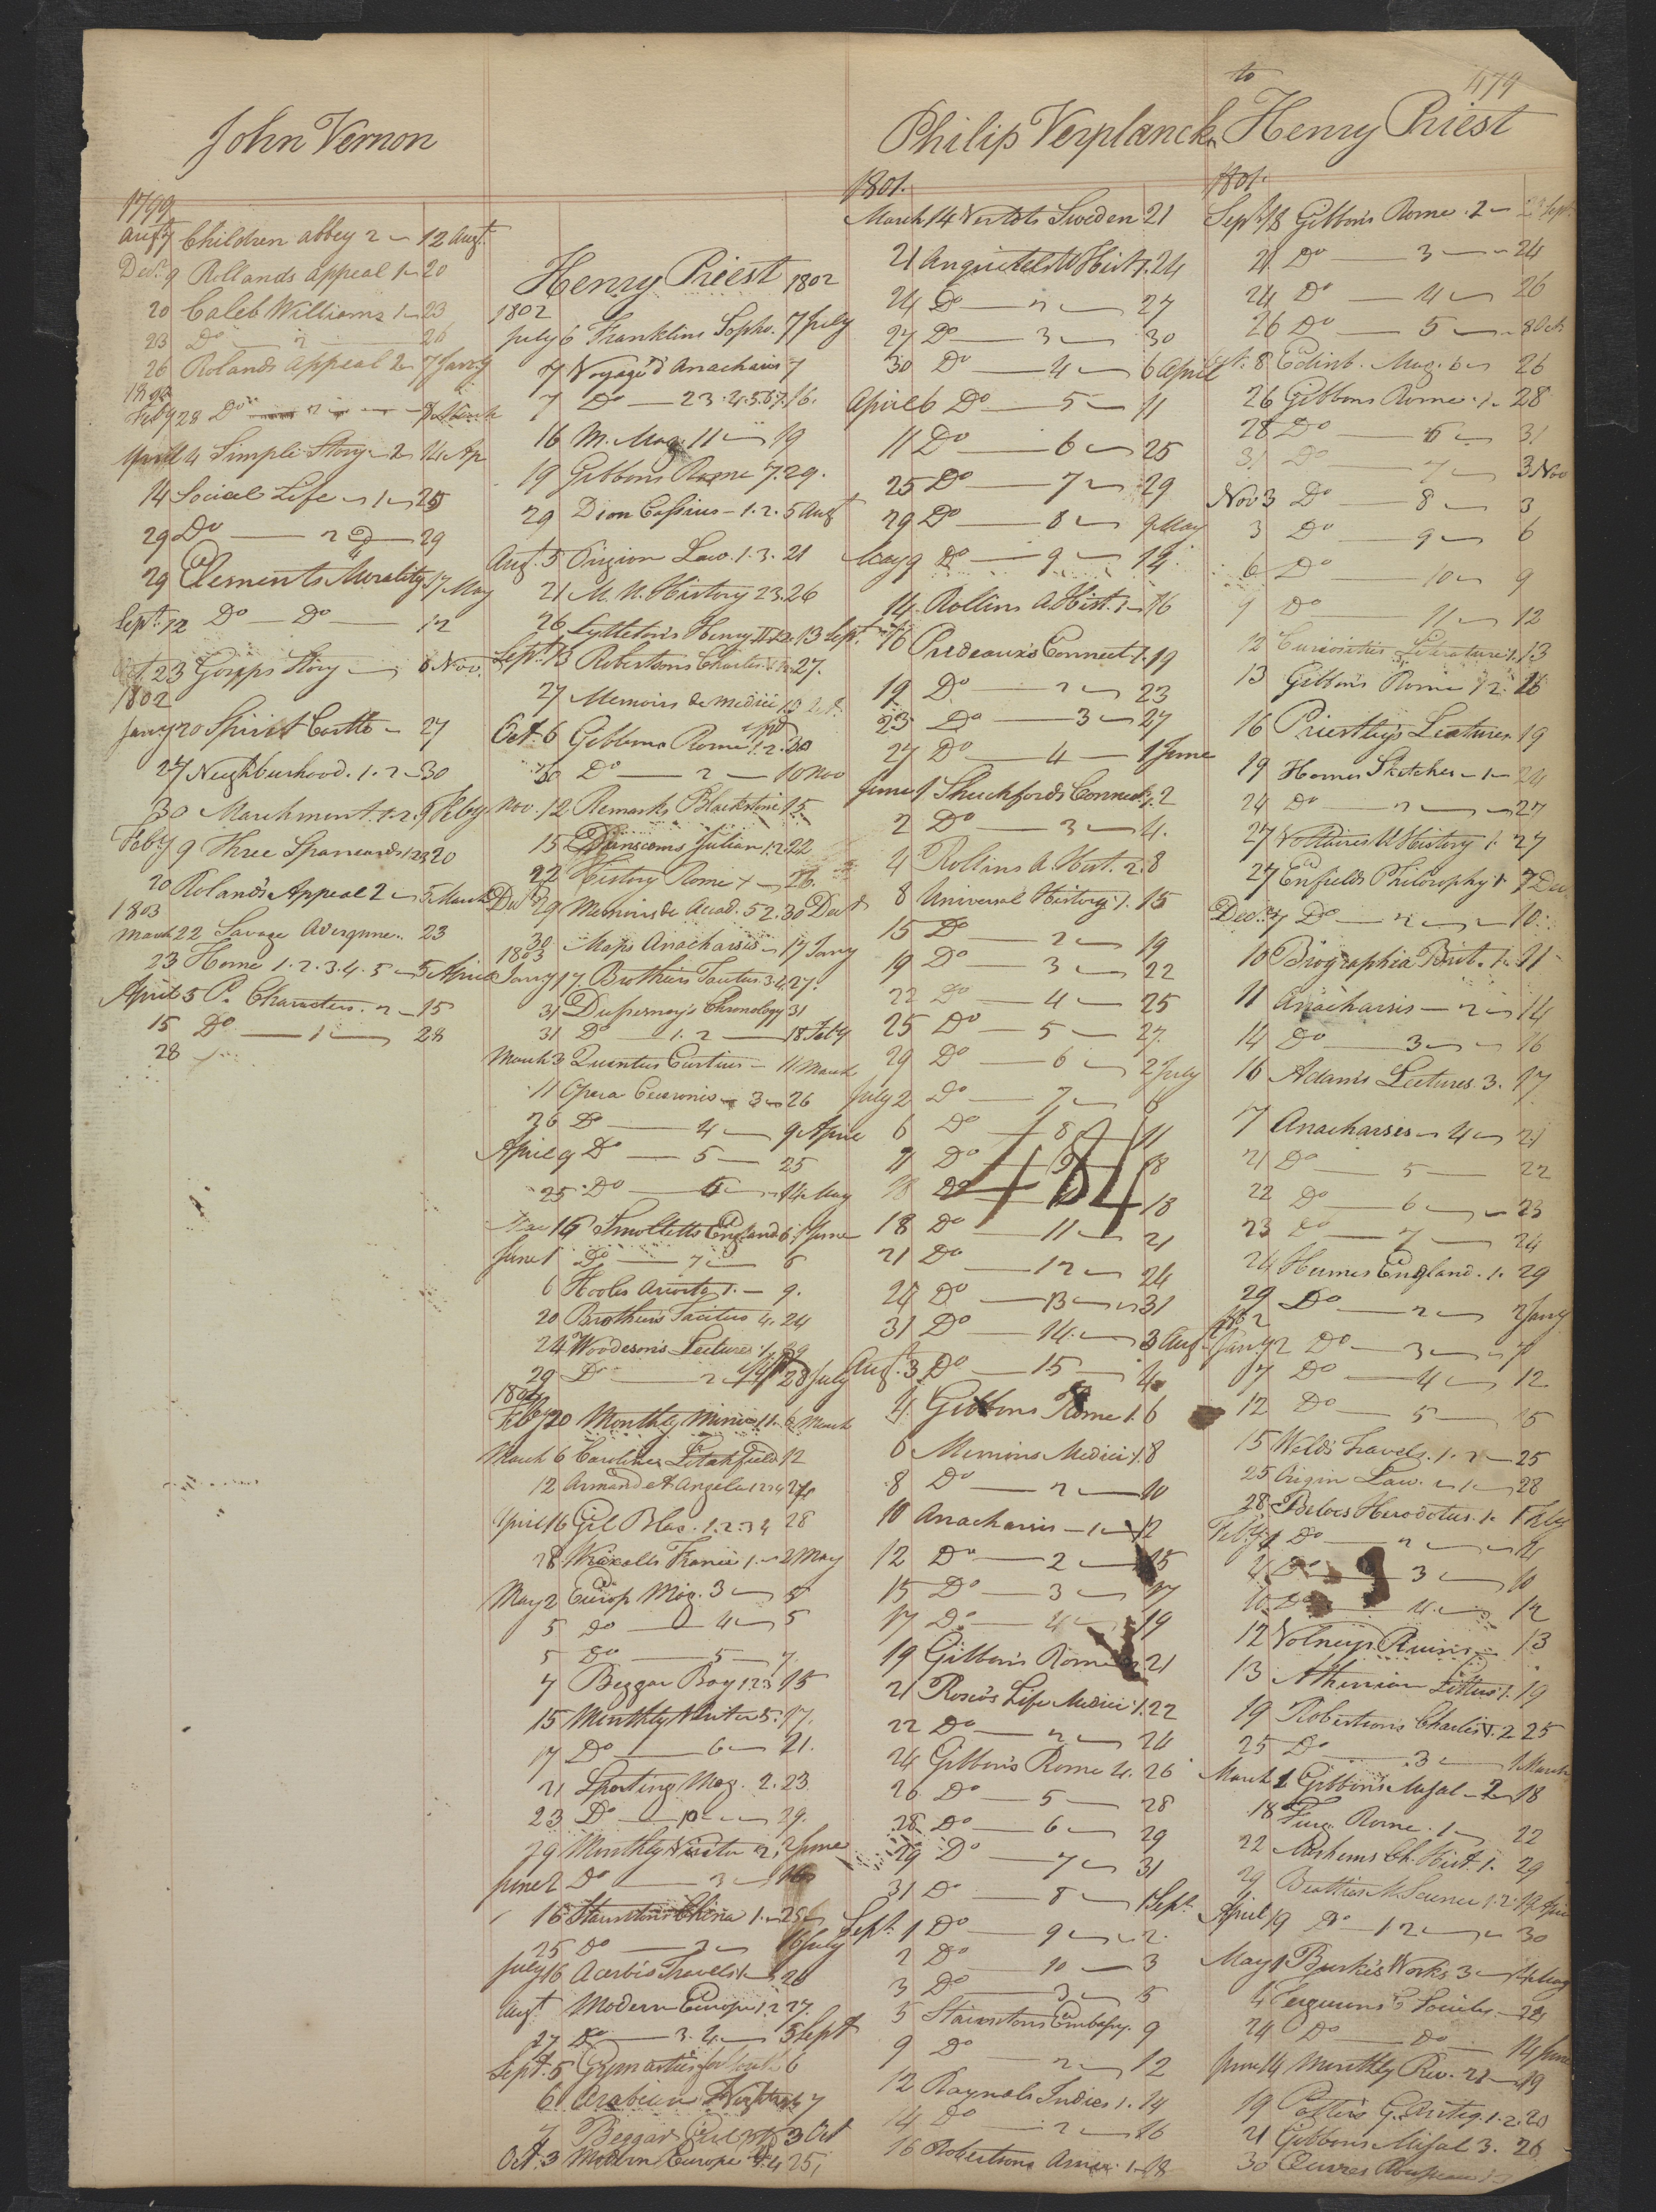 John Vernon
1799
Augt 7 Children abbey 2 12 Augt
Decr 9 Rollands appeal 1 20
20 Caleb Williams 1 23
23 Do 2 26
26 Rolands appeal 2 7 Jany
Feby 28 Do 2 March
April 4 Simple Story 2 14 Ap
14 Social Life 1 25
29 Do 2 29
29 Elements Morality 17 May
Sept. 12 Do Do 12
23 Gosips Story 6 Nov.
1802
Jany 20 Spirit Castle 27
27 Neighbourhood. 1. 2 30
30 Marchmont 1. 2. 9 Feby
Feby 9 Three Spaniards 1 2 3 20
20 Roland's Appeal 2 5 March
1803
March 22 Savage Avergnne. 23
23 Home 1. 2. 3. 4. 5 5 April
April 5 P. Characters. 2 15
15 Do 1 28
28
Henry Priest 1802
1802
July 6 Franklins Sopho. 7 July
7 Voyage d'Anacharsis 7
7 Do 2 3. 4. 5. 6 7. 16.
16 M. Mag. 11 19
19 Gibbons Rome 7. 29.
29 Dion Cassius 1. 2. 5 Augt
Aug. 5 Origion Law. 1. 3. 21
21 M. U. History 23. 26
26 Lyttleton's Henry II 1. 2. 13 Sept.
Sept. 13 Robertsons Charles 27.
27 Memoirs de Medici
Oct. 6 Gibbons Rome 1. 2. 30
30 Do 2 10 Nov
Nov. 12 Remarks Blackstone 15
15 Julian 1. 2. 22
22 History Rome 26.
Decr 29 Memoirs de Acad. 52. 30 Decr
30 Maps Anacharsis 17 Jany
1803
Jany 17. Brothiers Tacitus 3. 4. 27.
31 Dufresnoy's Chronology 31
31 Do 1. 2 18 Feby
March 3 Quintus Curtius 11 March
11 Opera Ciceronis 3 26
26 Do 4 9 April
April 9 Do 5 25
25 Do 6 14 May
16 Smolletts England 6. 1 June
June 1 Do 7 6
6 Hooles Ariosto 1. 9.
20 Brothiers Tacitus 4. 24
24 Woodesons Lectures 1. 29
29 Do 2 28 July
1804
Feby 20 Monthly Mirror 11. 6 March
March 6 Caroline Litchfield 12
12 Armand & Angela 1 2 3 4
April 16 Gil Blas. 1. 2 3 4 28
28 Wraxalls France 1. 2 May
May 2 Europ Mag. 3 5
5 do 4 5
5 Do 5 7
7 Beggar Boy 1 2 3 15
15 Monthly Visitor 5. 17.
17 Do 6 21.
21 Sporting Mag. 2. 23.
23 Do 10 29.
29 Monthly Visitor 2. 2 June
June 2 Do 3 16
16 Staunton's China 1. 25
25 Do 2 16 July
July 16 Acerbi's Travels 1 26
Augt Modern Europe 1. 2 27.
27 Do 3. 4. 5 Sept
Sept. 5 Gymnastics for Youth 6
6 Arabian Nights 7
7 Beggar Girl 3 Oct
Oct. 3 Modern Europe 3. 4 25
Philip Verplanck
1801.
March 14 Vertots Sweden 21
21 Anquitels U Hist 1. 24
24 Do 2 27
27 Do 3 30
30 Do 4 6 April
April 6 Do 5 11
11 Do 6 25
25 Do 7 29
29 Do 8 9 May
May 9 Do 9 14.
14. Rollins A. Hist. 1 16
16 Prideaux's Connect. 1. 19
19 Do 2 23
23 Do 3 27
27 Do 4 1 June
June 1 Shuckfords Connect. 1. 2
2 Do 3 4.
4 Rollins A. Hist. 2. 8
8 Universal History 1. 15
15 Do 2 19
19 Do 3 22
22 Do 4 25
25 Do 5 27.
29 Do 6 2 July
July 2 Do 7 6
6 Do 8 11
11 Do 9 18
18 Do 18
484
18 Do 11 21
21 Do 12 24
24 Do 13 31
31 Do 14 3 Aug
Aug. 3 Do 15 4
4 Gibbons Rome 1. 6
6 Memoirs Medici 1. 8
8 Do 2 10
10 Anacharsis 1 12
12 Do 2 15
15 Do 3 17
17 Do 4 19
19 Gibbon's Rome 21
21 Rosco's Life Medici 1. 22
22 Do 2 24
24 Gibbon's Rome 4. 26
26 Do 5 28
28 Do 6 29
29 Do 7 31
31 Do 8 1 Sept.
Sept. 1 Do 9 2.
2 Do 10 3
3 Do 3 5
5 Stauntons Embassy. 9
9 Do 2 12
12 Raynals Indies 1. 14
14 Do 2 16
16 Robertsons Amer. 1. 18
to 1179
Henry Priest
1801.
Sept. 18 Gibbon's Rome. 2 Sept
21 Do 3 24
24 Do 4 26
26 Do 5 8 Oct
8 Edinb. Mag. 6 26
26 Gibbons Rome 1. 28
28 Do 6 31
31 Do 7 3 Nov
Nov. 3 Do 8 3
3 Do 9 6
6 Do 10 9
9 Do 11 12
12 Curiosities Literature 1. 13
13 Gibbon's Rome 12. 16
16 Priestley's Lectures 19
19 Homes Sketches 1 24
24 Do 2 27
27 Voltaires U History 1. 27
27 Enfields Philosophy 1. 7 Dec
Decr 7 Do 2 10.
10 Biographia Brit. 1. 11
11 Anacharsis 2 14
14 Do 3 16
16 Adam's Lectures. 3. 17.
17 Anacharsis 4 21
21 Do 5 22
22 Do 6 23
23 Do 7 24
24 Humes England. 1. 29
29 Do 2 2 Jany
1802
Jany 2 Do 3 7
7 Do 4 12
12 Do 5 15
15 Welds Travels. 1. 2 25
25 Origin Law. 1. 28
28 Beloes Herodotus. 1. 1 Feby
Feby 1 Do 2 4
4 Do 3 10
10 Do 4. 12
12 Volneys Ruins 13
13 Athenian Letters 1. 19
19 Robertsons Charles V. 2 25
25 Do 3 1 March
March 1 Gibbons Misal. 2 18
18 Rome. 1 22
22 Moshiems Ch. Hist. 1. 29
29 Beatties M. Science 1. 2. 19 April
April 19 Do 1 2 30
May 1 Burke's Works 3 4 May
4 Fergusons C. Society 24
24 Do Do 14 June
June 14 Monthly Rev. 21 19
19 Potters G. Antiq. 1. 2. 20
21 Gibbons Misal 3. 26
30 Œuvres Rousseau